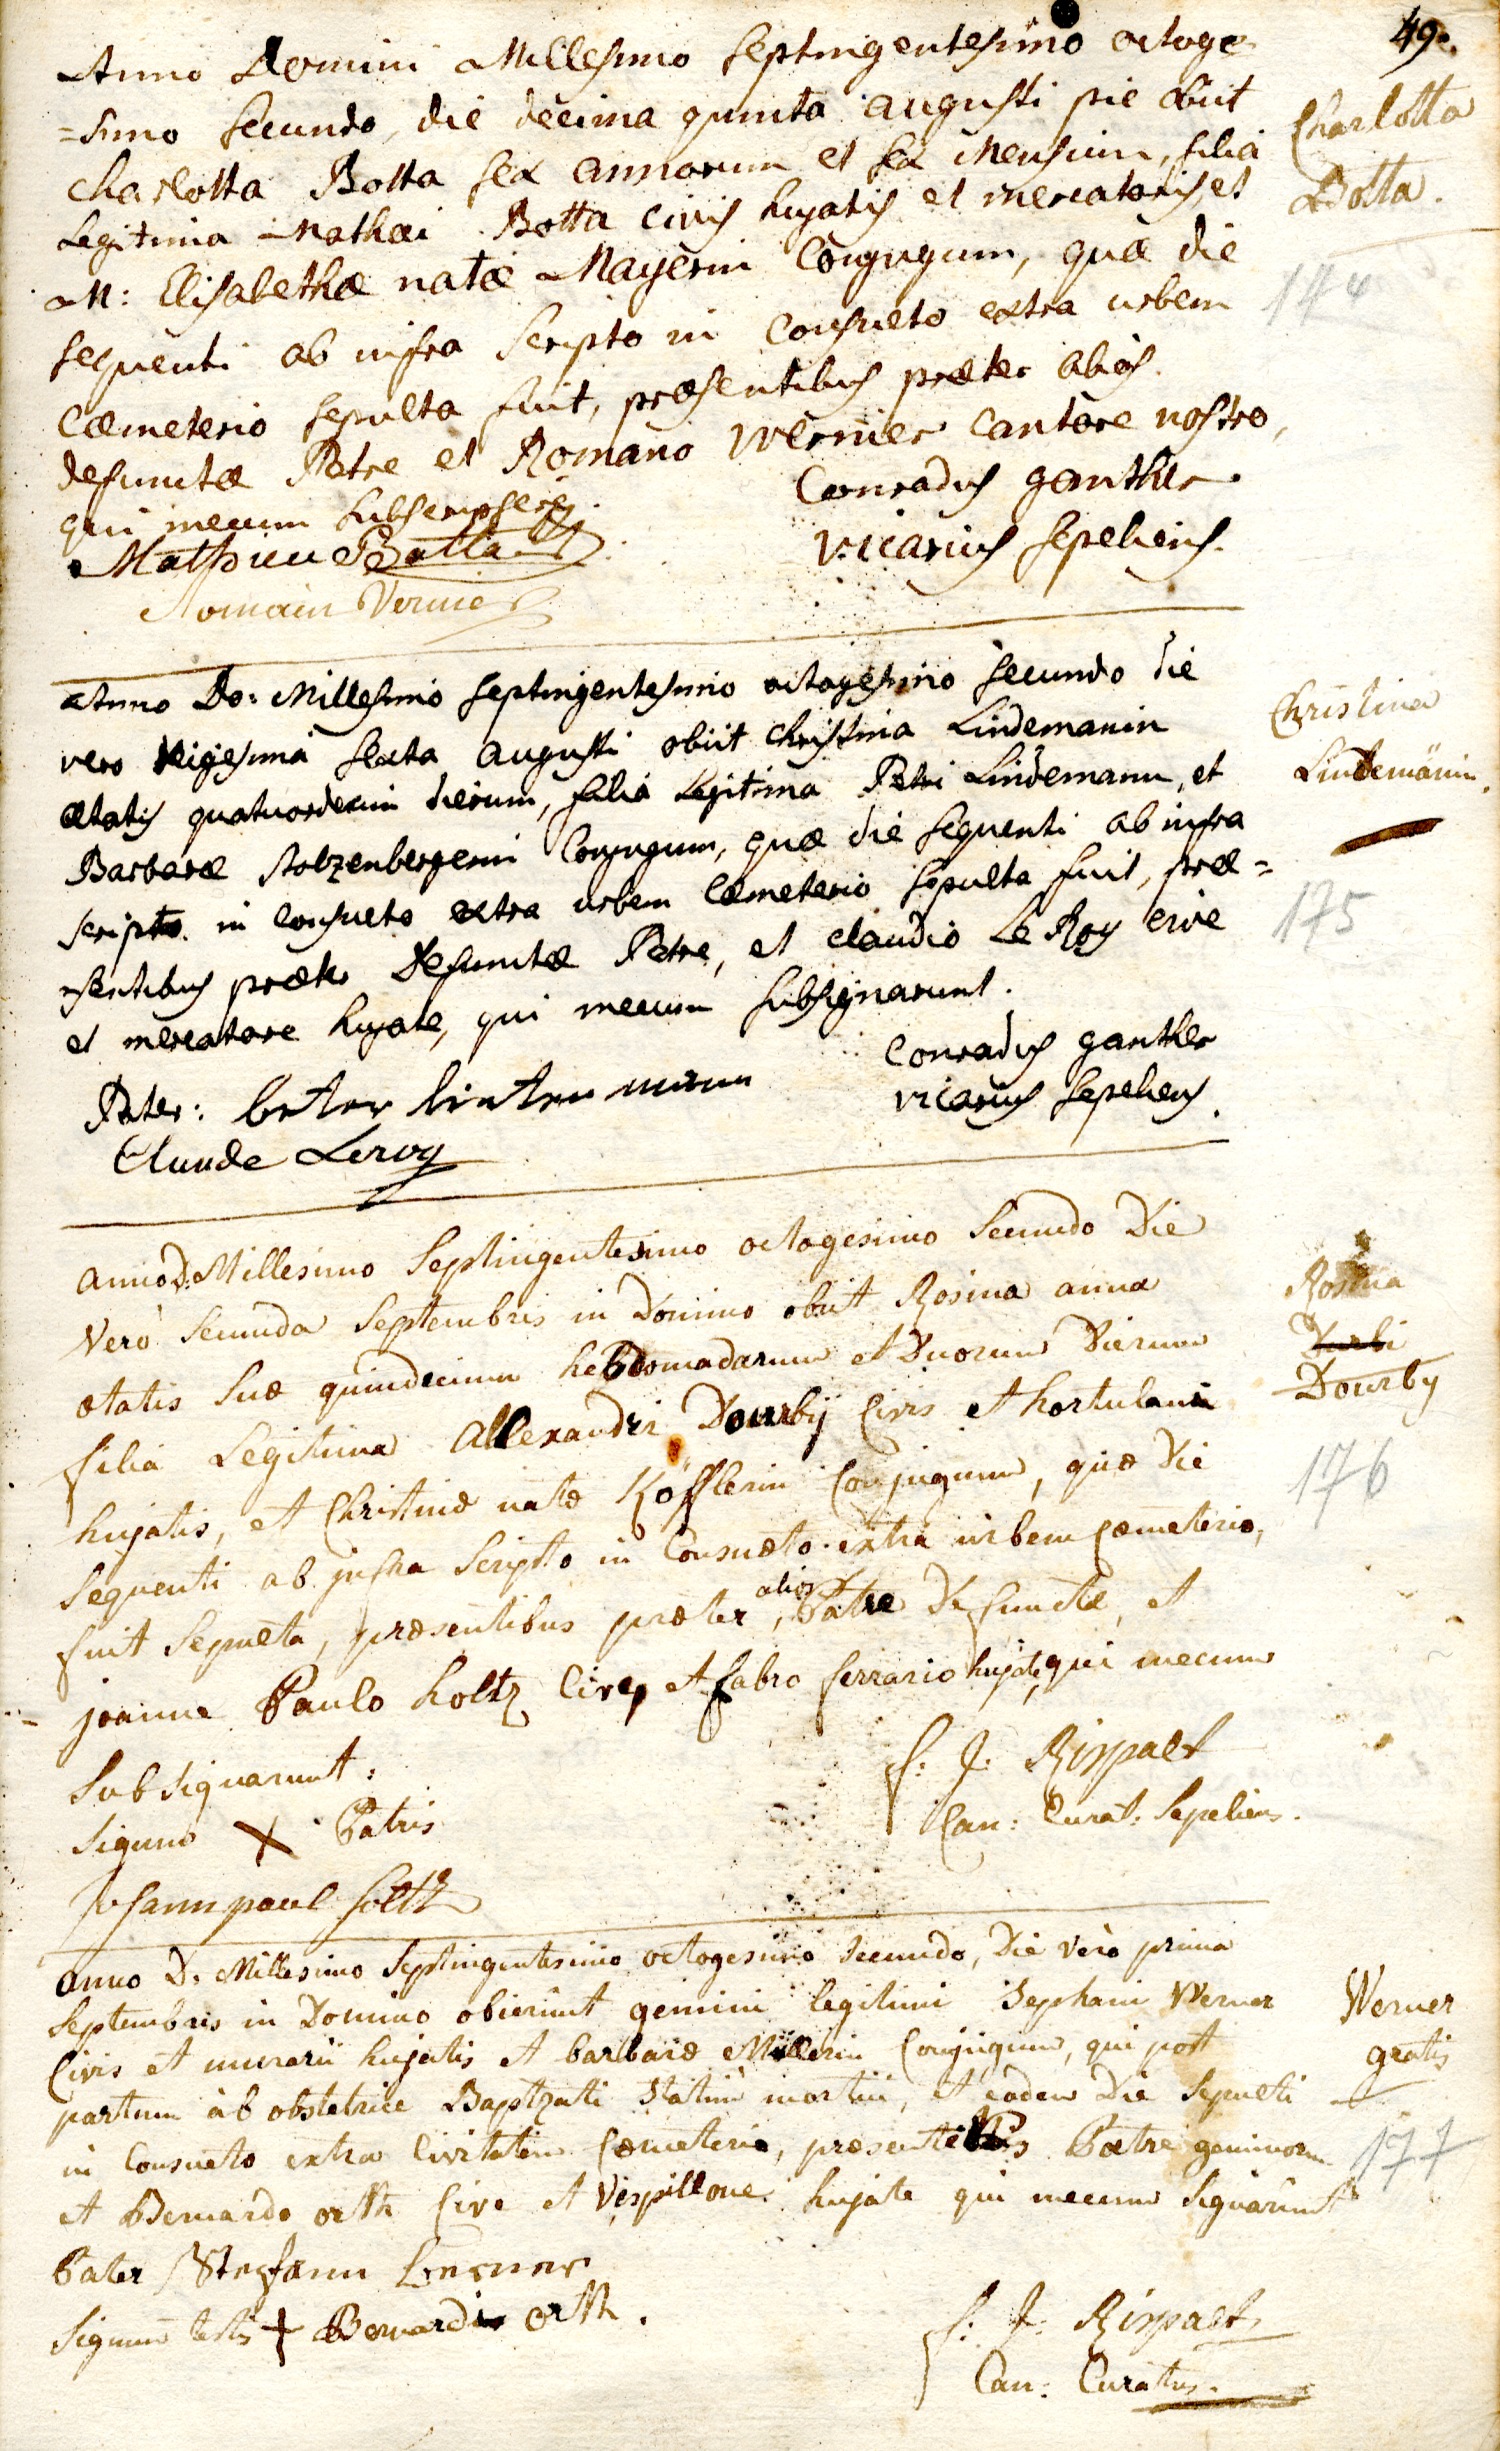 49.
Anno Domini Millesimo septingentesimo octoge
=simo secundo, die decima quinta augusti pie obiit
Charlotta Botta sex annorum et sex mensium, filia
Legitima Mathæi Botta civis hujatis et mercatoris, et
M: Elisabethæ natæ Mayerin Conjugum, quæ die
sequenti ab infra scripto in consueto extra urbem
Cæmeterio sepulta fuit, præsentibus præter alios
defunctæ Patre et Romano Wernier cantore nostro,
qui mecum subscripsere.
Conradus ganther
vicarius sepeliens.
Mathieu Botta
Romain Vernier
Charlotta
Botta.
174
Anno Do: Millesimo septingentesimo octogesimo secundo die
vero veigesima sexta augusti obiit Christina Lindemanin
ætatis quatuordecim dierum, filia Legitima Petri Lindemann, et
Barbaræ Stolzenbergerin Conjugum, quæ die sequenti ab infra
scripto in consueto extra urbem Cæmeterio sepulta fuit, præ=
=sentibus præter Defunctæ Patre, et claudio Le Roy cive
et mercatore hujate, qui mecum subsignarunt.
Conradus ganther
vicarius sepeliens.
Pater: beter linten mann
Claude Leroy
Christina
Lindemänin.
175
anno D. Millesimo Septingentesimo octogesimo Secundo Die
Vero Secunda Septembris in Domino obiit Rosina anna
ætatis suæ quindecimm hebdomadarum et Duorum Dierum
filia Legitima Allexandri Dourby Civis et hortulani
hujatis, et Christinæ natæ Köfflerin Conjugum, quæ Die
Sequenti ab jnfra Scripto in Consueto extra urbem Cæmeterio,
fuit Sepulta, præsentibus præter alios, Patre Defunctæ, et
joanne Paulo holtz Cive, et fabro ferrario hujate, qui mecum
Subsignarunt:
f: J: Rispalt
Can: Curat: Sepeliens.
Signum X Patris
Johann paul holtz
Rosina
Durbi
Dourby
176
anno D. Millesimo Septingentesimo octogesimo secundo, Die vero prima
Septembris in Domino obierunt gemini legitimi Stephani Werner
Civis et murarii hujatis et barbaræ Müllerin Conjugum, qui post
partum ab obstetrice Baptzati statim mortui, et eadem Die Sepulti
in Consueto extra Civitatem Cæmeterio, præsentibus Patre geminorum
et Bernardo orth Cive et Vespillone hujate qui mecum Signarunt
Pater Stegfann Werner
Signum testis + Bernardi orth.
f: J: Rispalt
Can: Curatus.
Werner
gratis
177